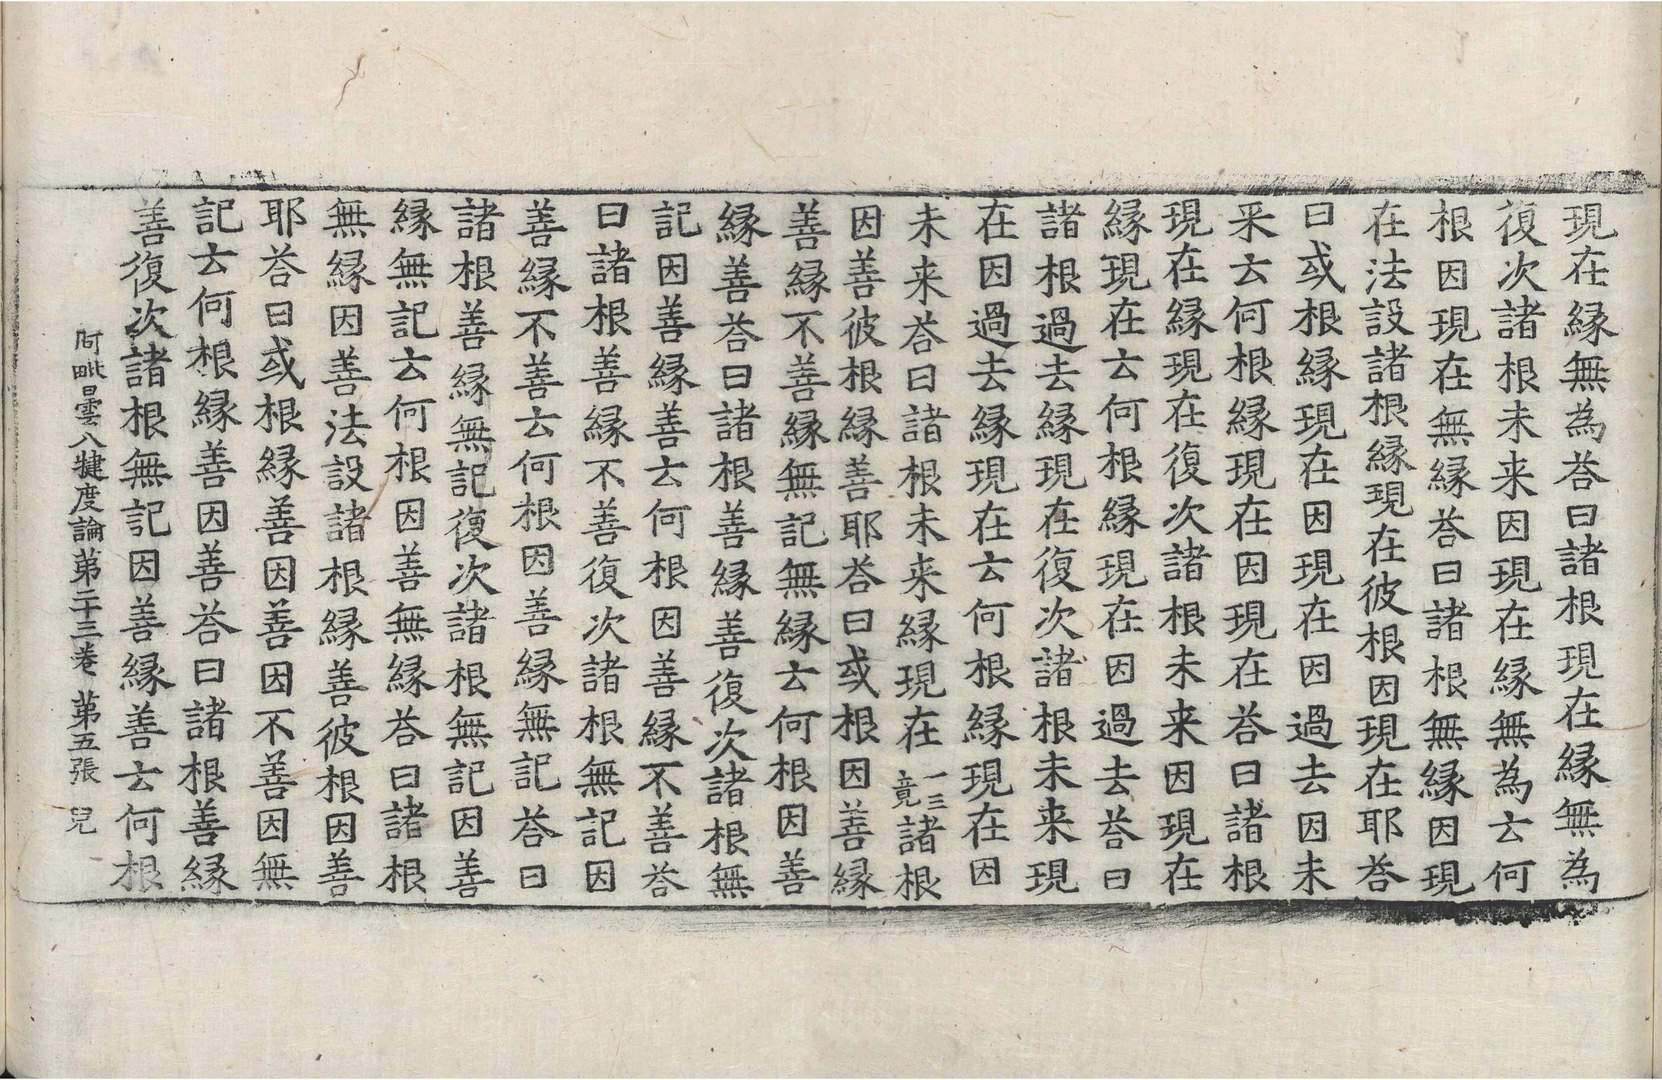 現在縁無為荅曰諸根現在縁無為
復次諸根未来因現在縁無為云何
根因現在無縁荅曰諸根無縁因現
在法設諸根縁現在彼根因現在耶荅
曰或根縁現在因現在因過去因未
来云何根縁現在因現在荅曰諸根
現在縁現在復次諸根未来因現在
縁現在云何根縁現在因過去荅曰
諸根過去縁現在復次諸根未来現
在因過去縁現在云何根縁現在因
未来荅曰諸根未来縁現在一三竟諸根
因善彼根縁善耶荅曰或根因善縁
善縁不善縁無記無縁云何根因善
縁善荅曰諸根善縁善復次諸根無
記因善縁善云何根因善縁不善荅
曰諸根善縁不善復次諸根無記因
善縁不善云何根因善縁無記荅曰
諸根善縁無記復次諸根無記因善
縁無記云何根因善無縁荅曰諸根
無縁因善法設諸根縁善彼根因善
耶荅曰或根縁善因善因不善因無
記云何根縁善因善荅曰諸根善縁
善復次諸根無記因善縁善云何根
阿毗曇八揵度論第二十三卷 第五張 兒